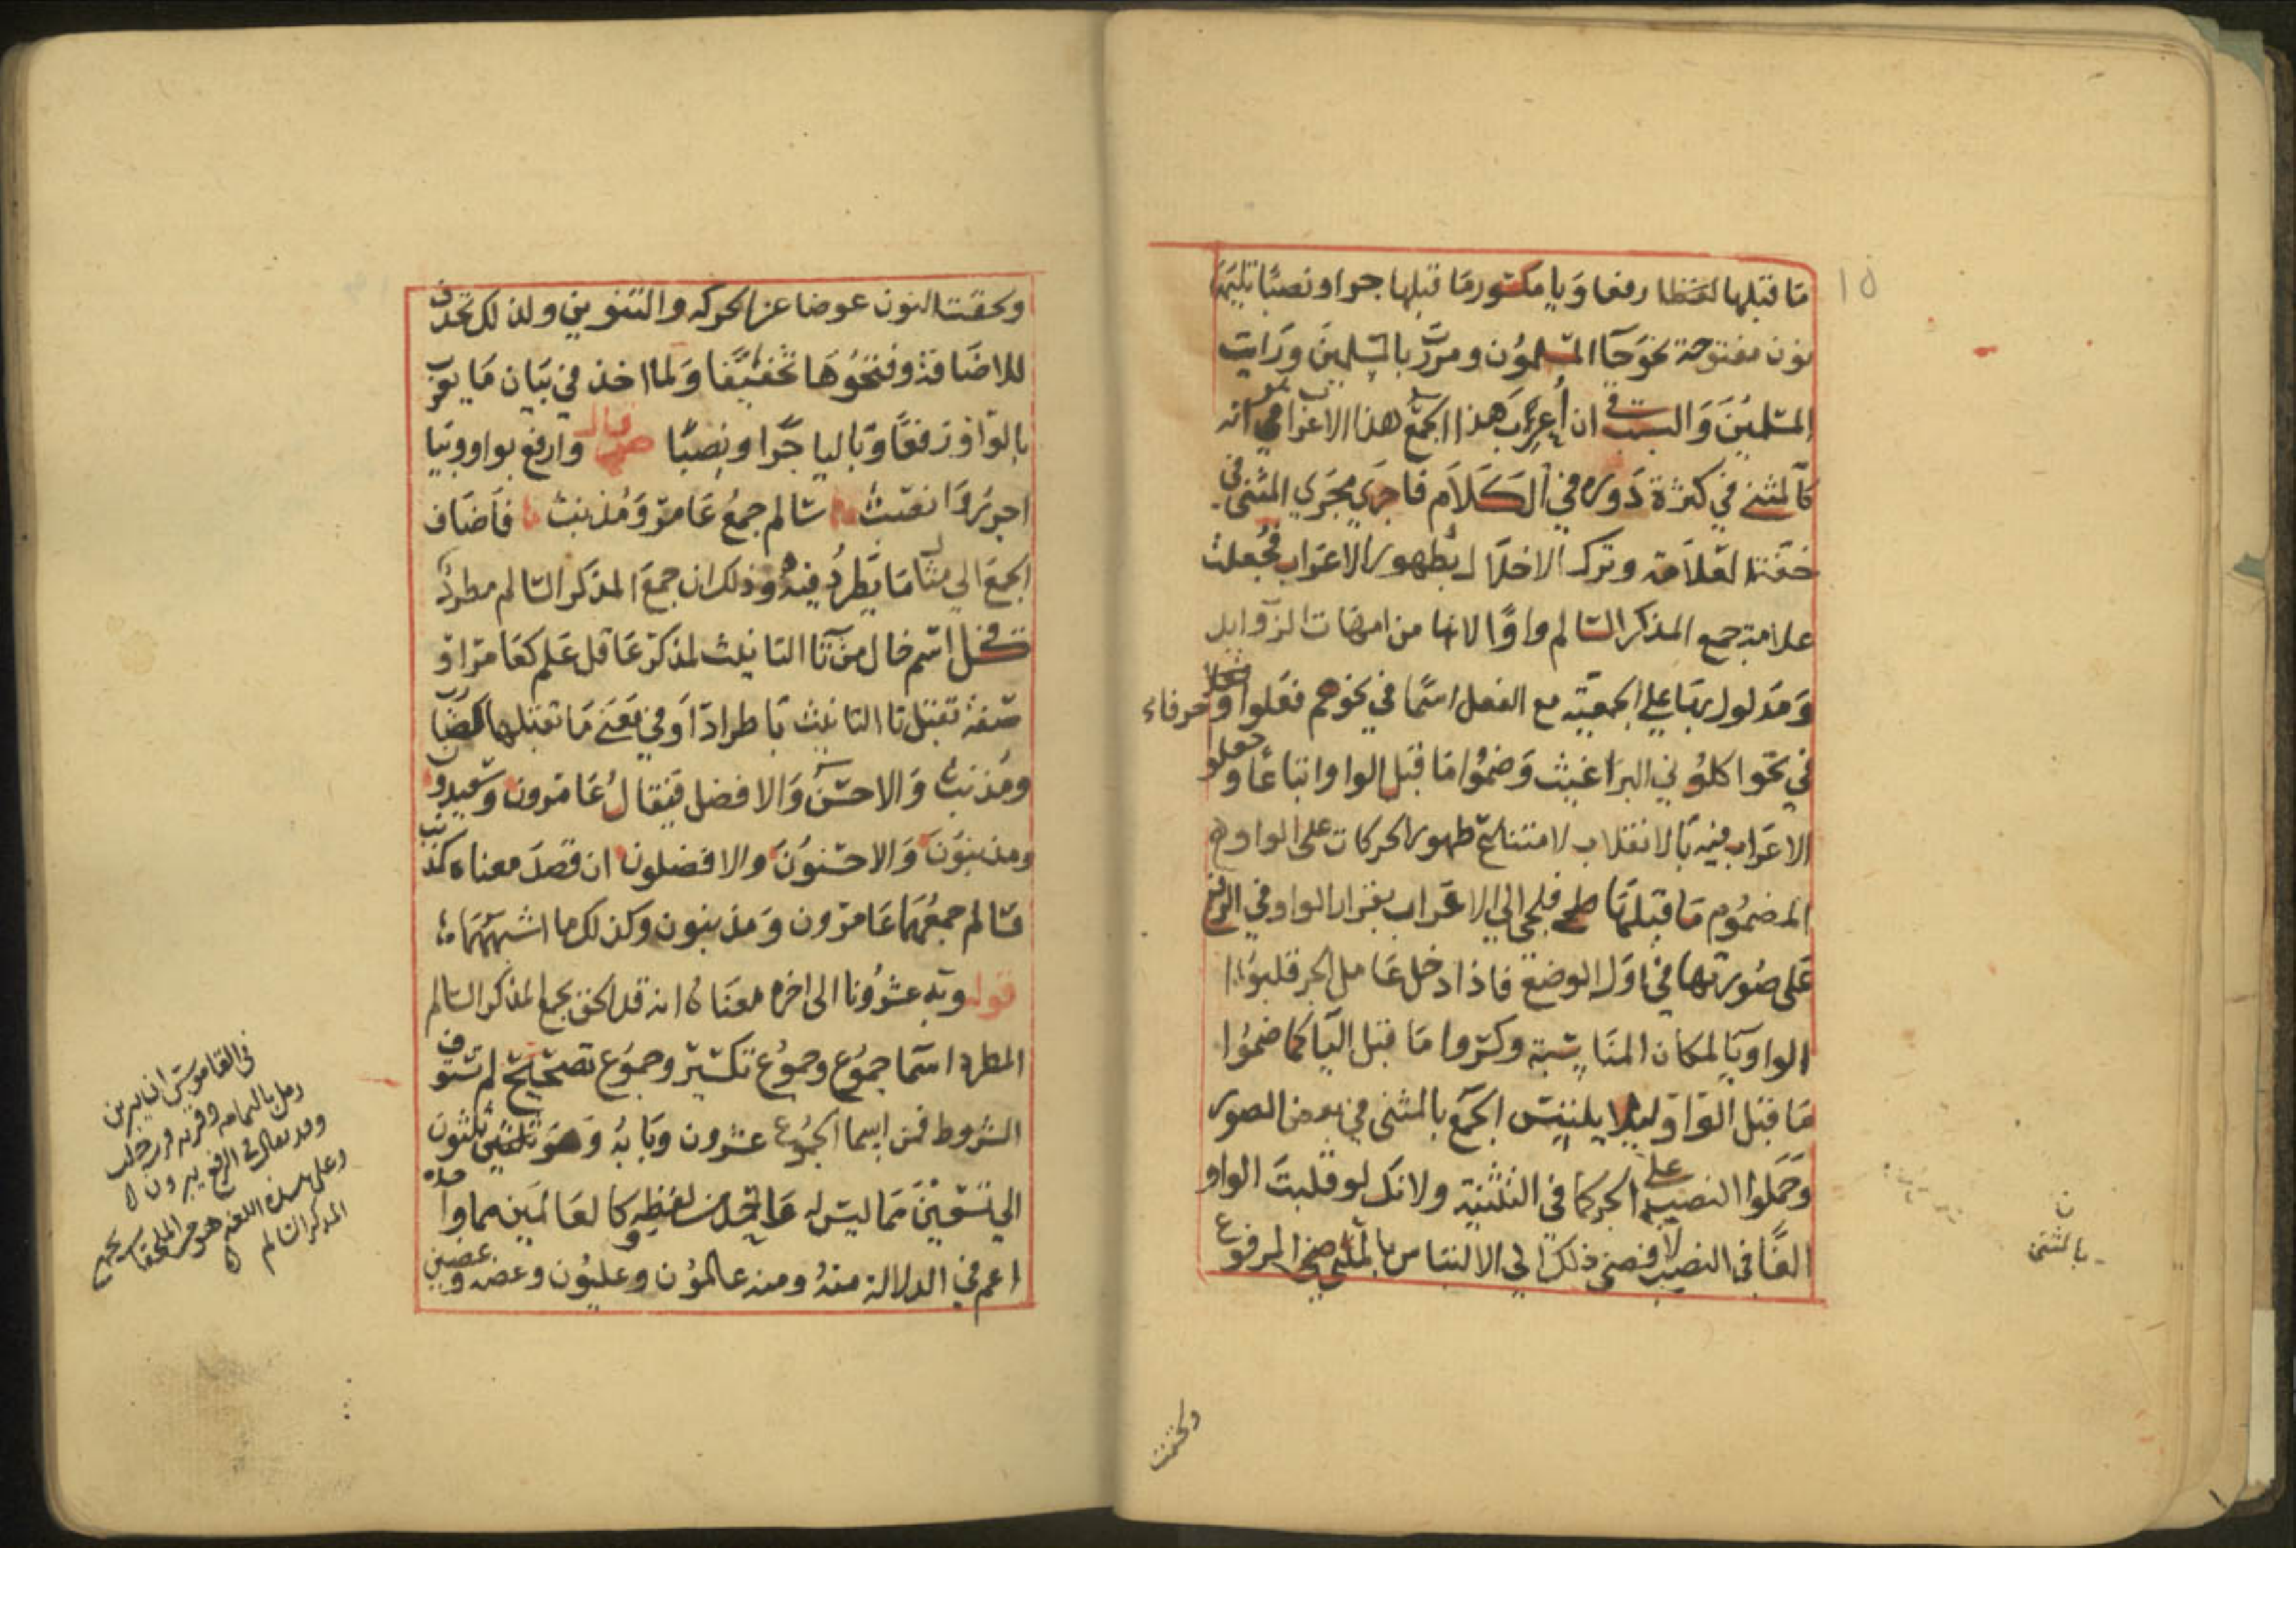 ١٥
ما قبلها لفظا رفعا ويا مكسور ما قبلها جرا ونصبا تليهما
نون مفتوحة نحو جآ المسلمون ومررت بالمسلمين ورايت
المسلمين والسبب في ان أعرب هذا الجمع هذا الاعراب هو انه
كالمثنى في كثرة دوره في الكلام فاجري مجرى المثنى في
خفة العلامة وترك الاخلال بظهور الاعراب فجعلت
علامة جمع المذكر السالم واوا لانها من امهات الزوايد
ومدلول بها على الجمعية مع الفعل اسما في نحو هم فعلوا وحرفا
في نحو اكلوني البراغيث وضموا ما قبل الواو اتباعا وجعلو
الاعراب فيه بالانقلاب لامتناع ظهور الحركات على الواو
المضموم ما قبلها فلجى الى الاعراب بقرار الواو في الرفع
على صورتها في اول الوضع فاذا دخل عامل الجر قلبوا
الواو يا لمكان المناسبة وكسروا ما قبل اليا كما ضموا
ما قبل الواو ليلا يلتبس الجمع بالمثنى في بعض الصور
وحملوا النصب على الجر كما في التثنية ولانك لو قلبت الواو
الفا في النصب لافضى ذلك الى الالتباس بالمثنى المرفوع
بالمثنى
ولحقت
ولحقت النون عوضا عن الحركه والتنوين ولذلك تحذف
للاضافة وفتحوها تخفيفا ولما اخذ في بيان ما يعرب
بالواو رفعا وباليا جرا ونصبا قال ص وارفع بواو وبيا
اجرر وانصب سالم جمع عامر ومذنب فاضاف
الجمع الى مثال ما يطرد فيه وذلك ان جمع المذكر السالم مطرد
في كل اسم خال من تا التانيث لمذكر عاقل علم كعامر او
صفة تقبل تا التانيث باطراد او في معنى ما تقبلها كضارب
ومذنب والاحسن والافضل فيقال عامرون وسعيدون
ومذنبون والاحسنون والافضلون ان قصد معناه
سالم جمعهما عامرون ومذنبون وكذلك ما اشبههما
قوله وبه عشرونا الى اخره معناه انه قد الحق بجمع المذكر السالم
المطرد اسما جموع وجموع تكسير وجموع تصحيح لم تستوف
الشروط فمن اسما الجموع عشرون وبابه وهو ثلثون
الى تسعين مما ليس له واحد من لفظه كالعالمين مما واحده
اعم في الدلالة منه ومنه عالمون وعليون وعضه وعضين
في القاموس ان يبرين
رمل باليمامه وقريه قرب حلب
وقد يقال في الرفع يبرون
وعلى هذه اللغه هو من الملحقات بجمع
المذكر السالم